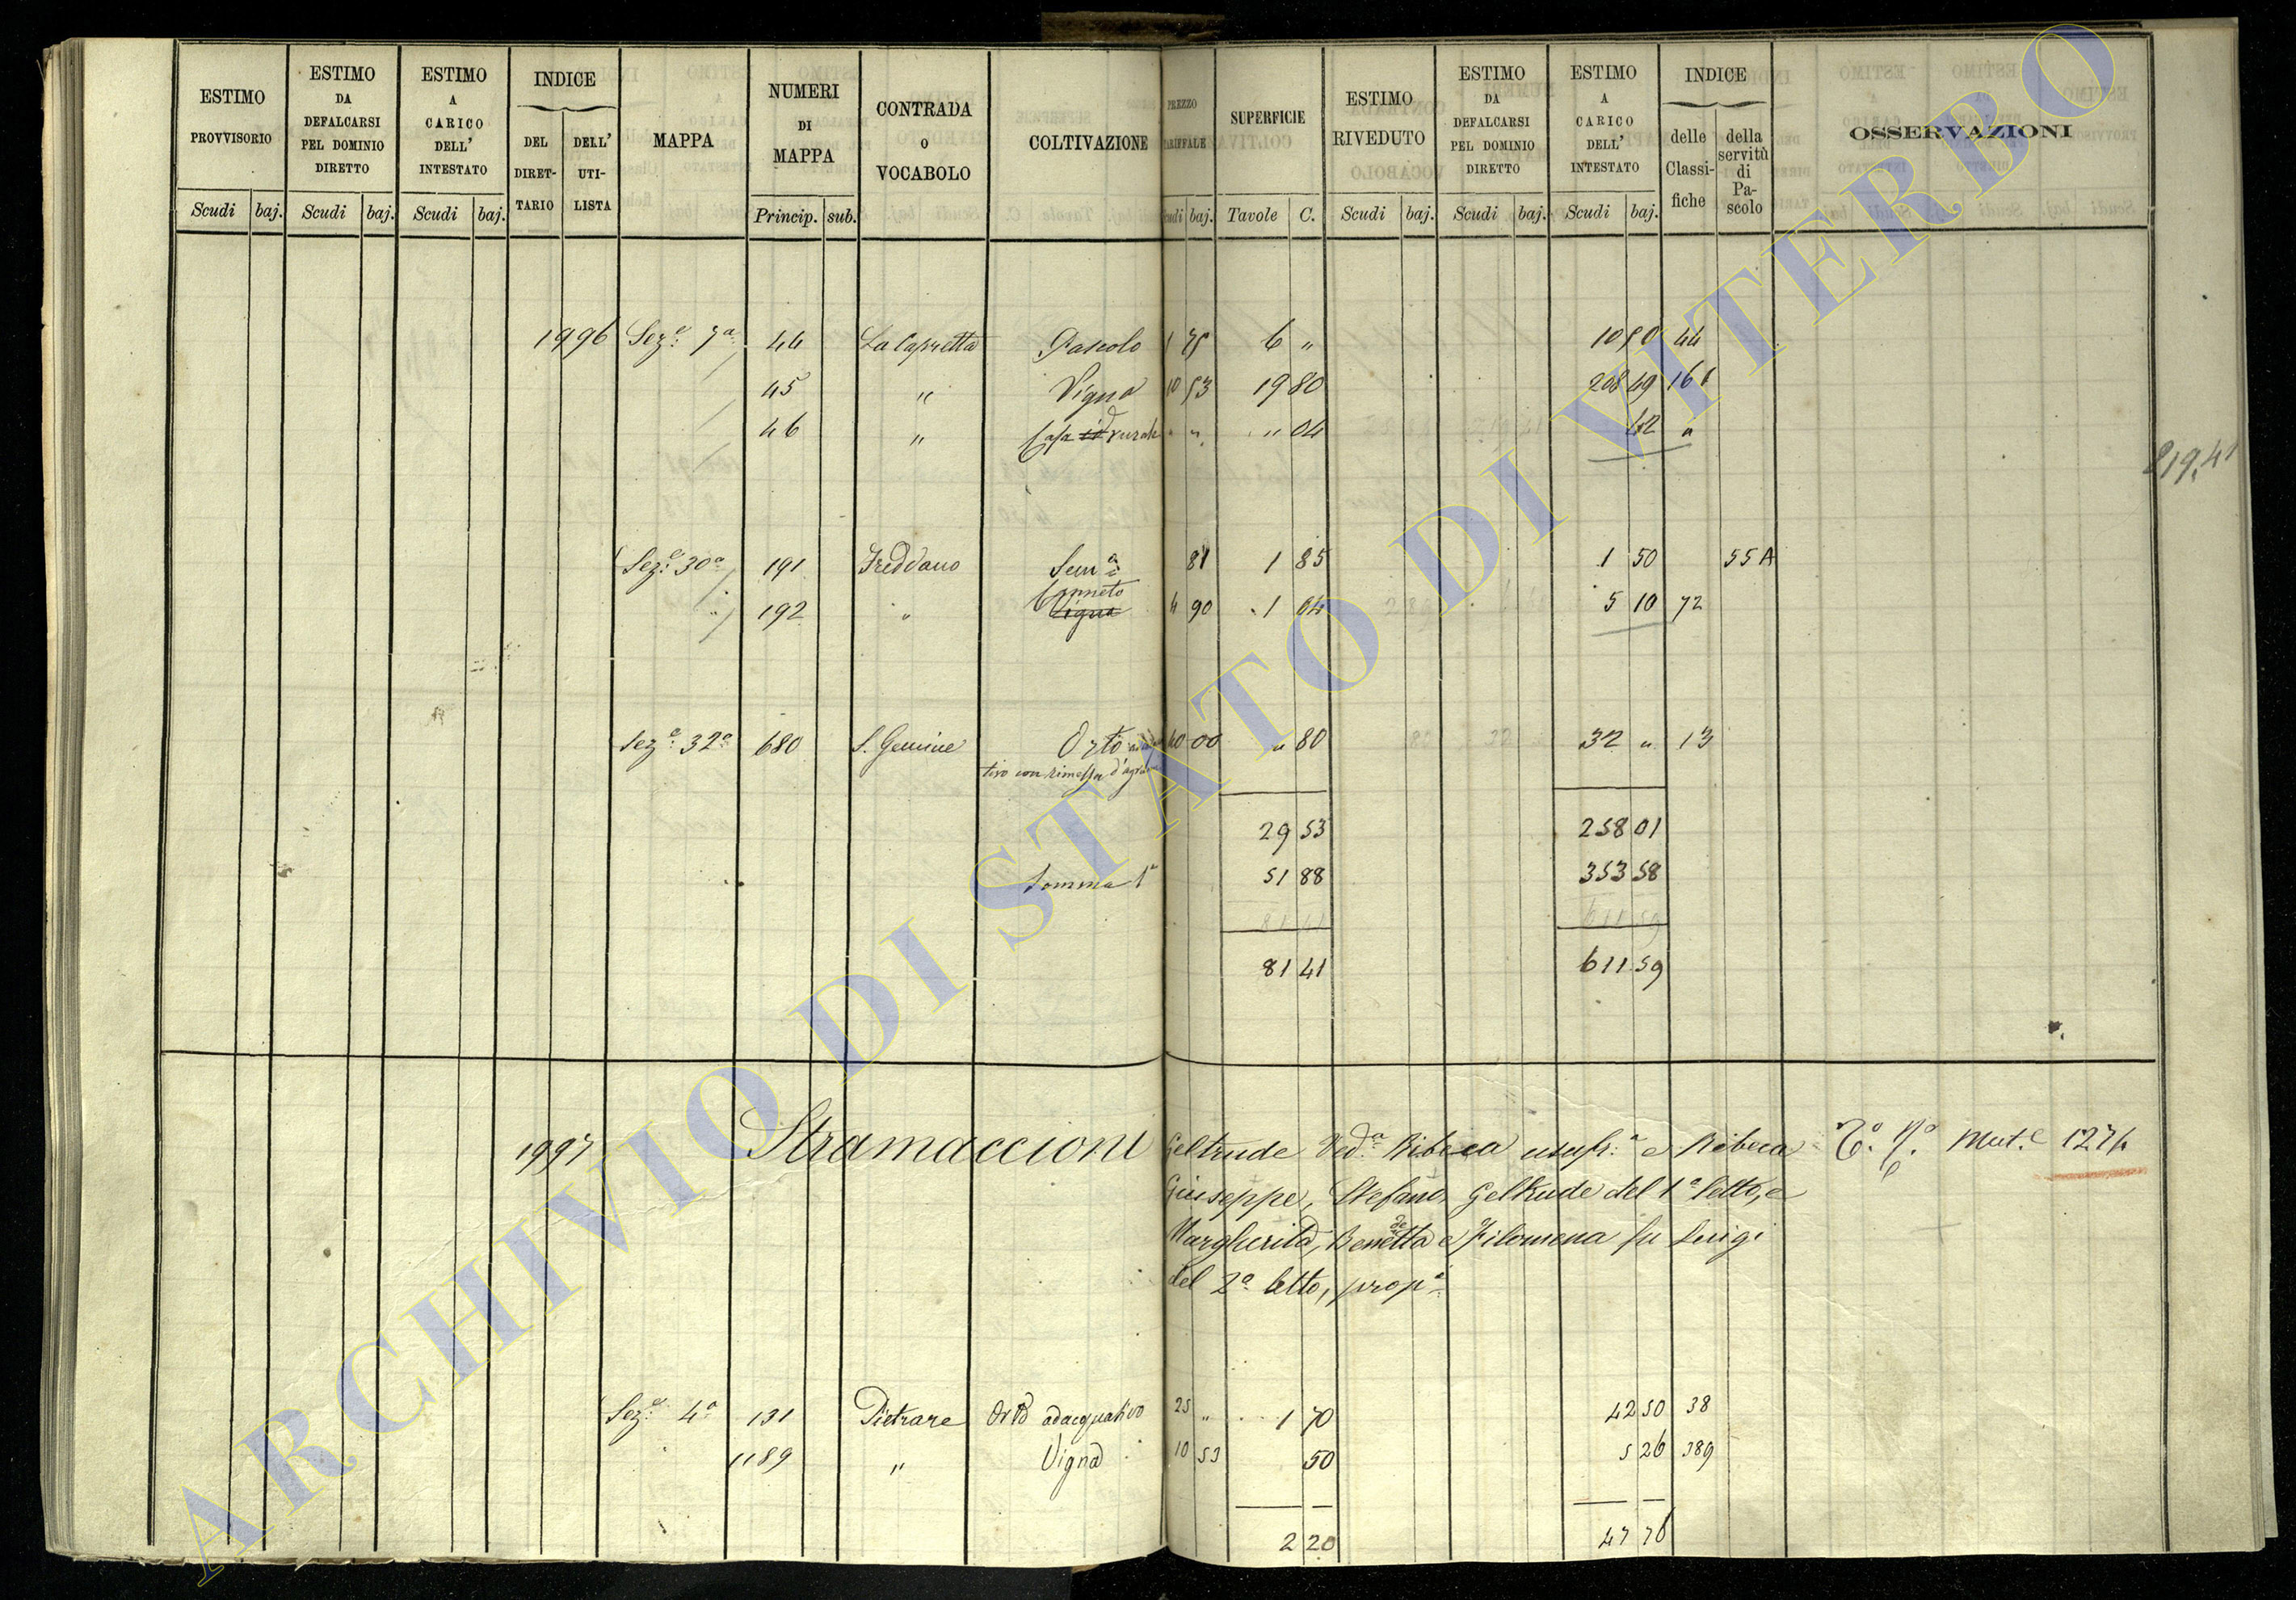 ESTIMO PROVVISORIO
Scudi baj.
ESTIMO DA DEFALCARSI PEL DOMINIO DIRETTO
Scudi baj.
ESTIMO A CARICO DELL' INTESTATO
Scudi baj.
INDICE
DEL DIRET-TARIO
DELL' UTI-LISTA
MAPPA
NUMERI DI MAPPA
Princip. sub.
CONTRADA o VOCABOLO
COLTIVAZIONE
PREZZO TARIFFALE
Scudi baj.
SUPERFICIE
Tavole C.
ESTIMO RIVEDUTO
Scudi baj.
ESTIMO DA DEFALCARSI PEL DOMINIO DIRETTO
Scudi baj.
ESTIMO A CARICO DELL' INTESTATO
Scudi baj.
INDICE
delle Classi-fiche
della servitù di Pa-scolo
OSSERVAZIONI
1996 Sez.e 7a 44 La Capretta Pascolo 1 75 6 " 10 50 44
45 " Vigna 10 53 19 80 208 49 161
46 " Casa rurale " " " 04 42 "
819.41
Sez.e 30a 191 Freddano Sema 81 1 85 1 50 55 A
" 192 " Canneto Vigna 4 90 1 04 5 10 72
Sez.e 32a 680 S. Gemine Orto 40 00 " 80 32 " 13
tivo con rimessa d'agrumi
29 53 258 01
Somma 1a 51 88 353 58
81 41 611 59
81 41 611 59
1997 Stramaccioni Geltrude Ved.a Ribeca usufr.a e Ribeca T.o N.o Mut.e 1274
Giuseppe, Stefano, Geltrude del 1o letto, e
Margherita, Benedetta e Filomena fu Luigi
del 2o letto, prop.e
Sez.e 4a 131 Pietrare Orto adacquativo 25 " 1 70 42 50 38
1189 " Vigna 10 53 50 5 26 389
2 20 47 76
ARCHIVIO DI STATO DI VITERBO